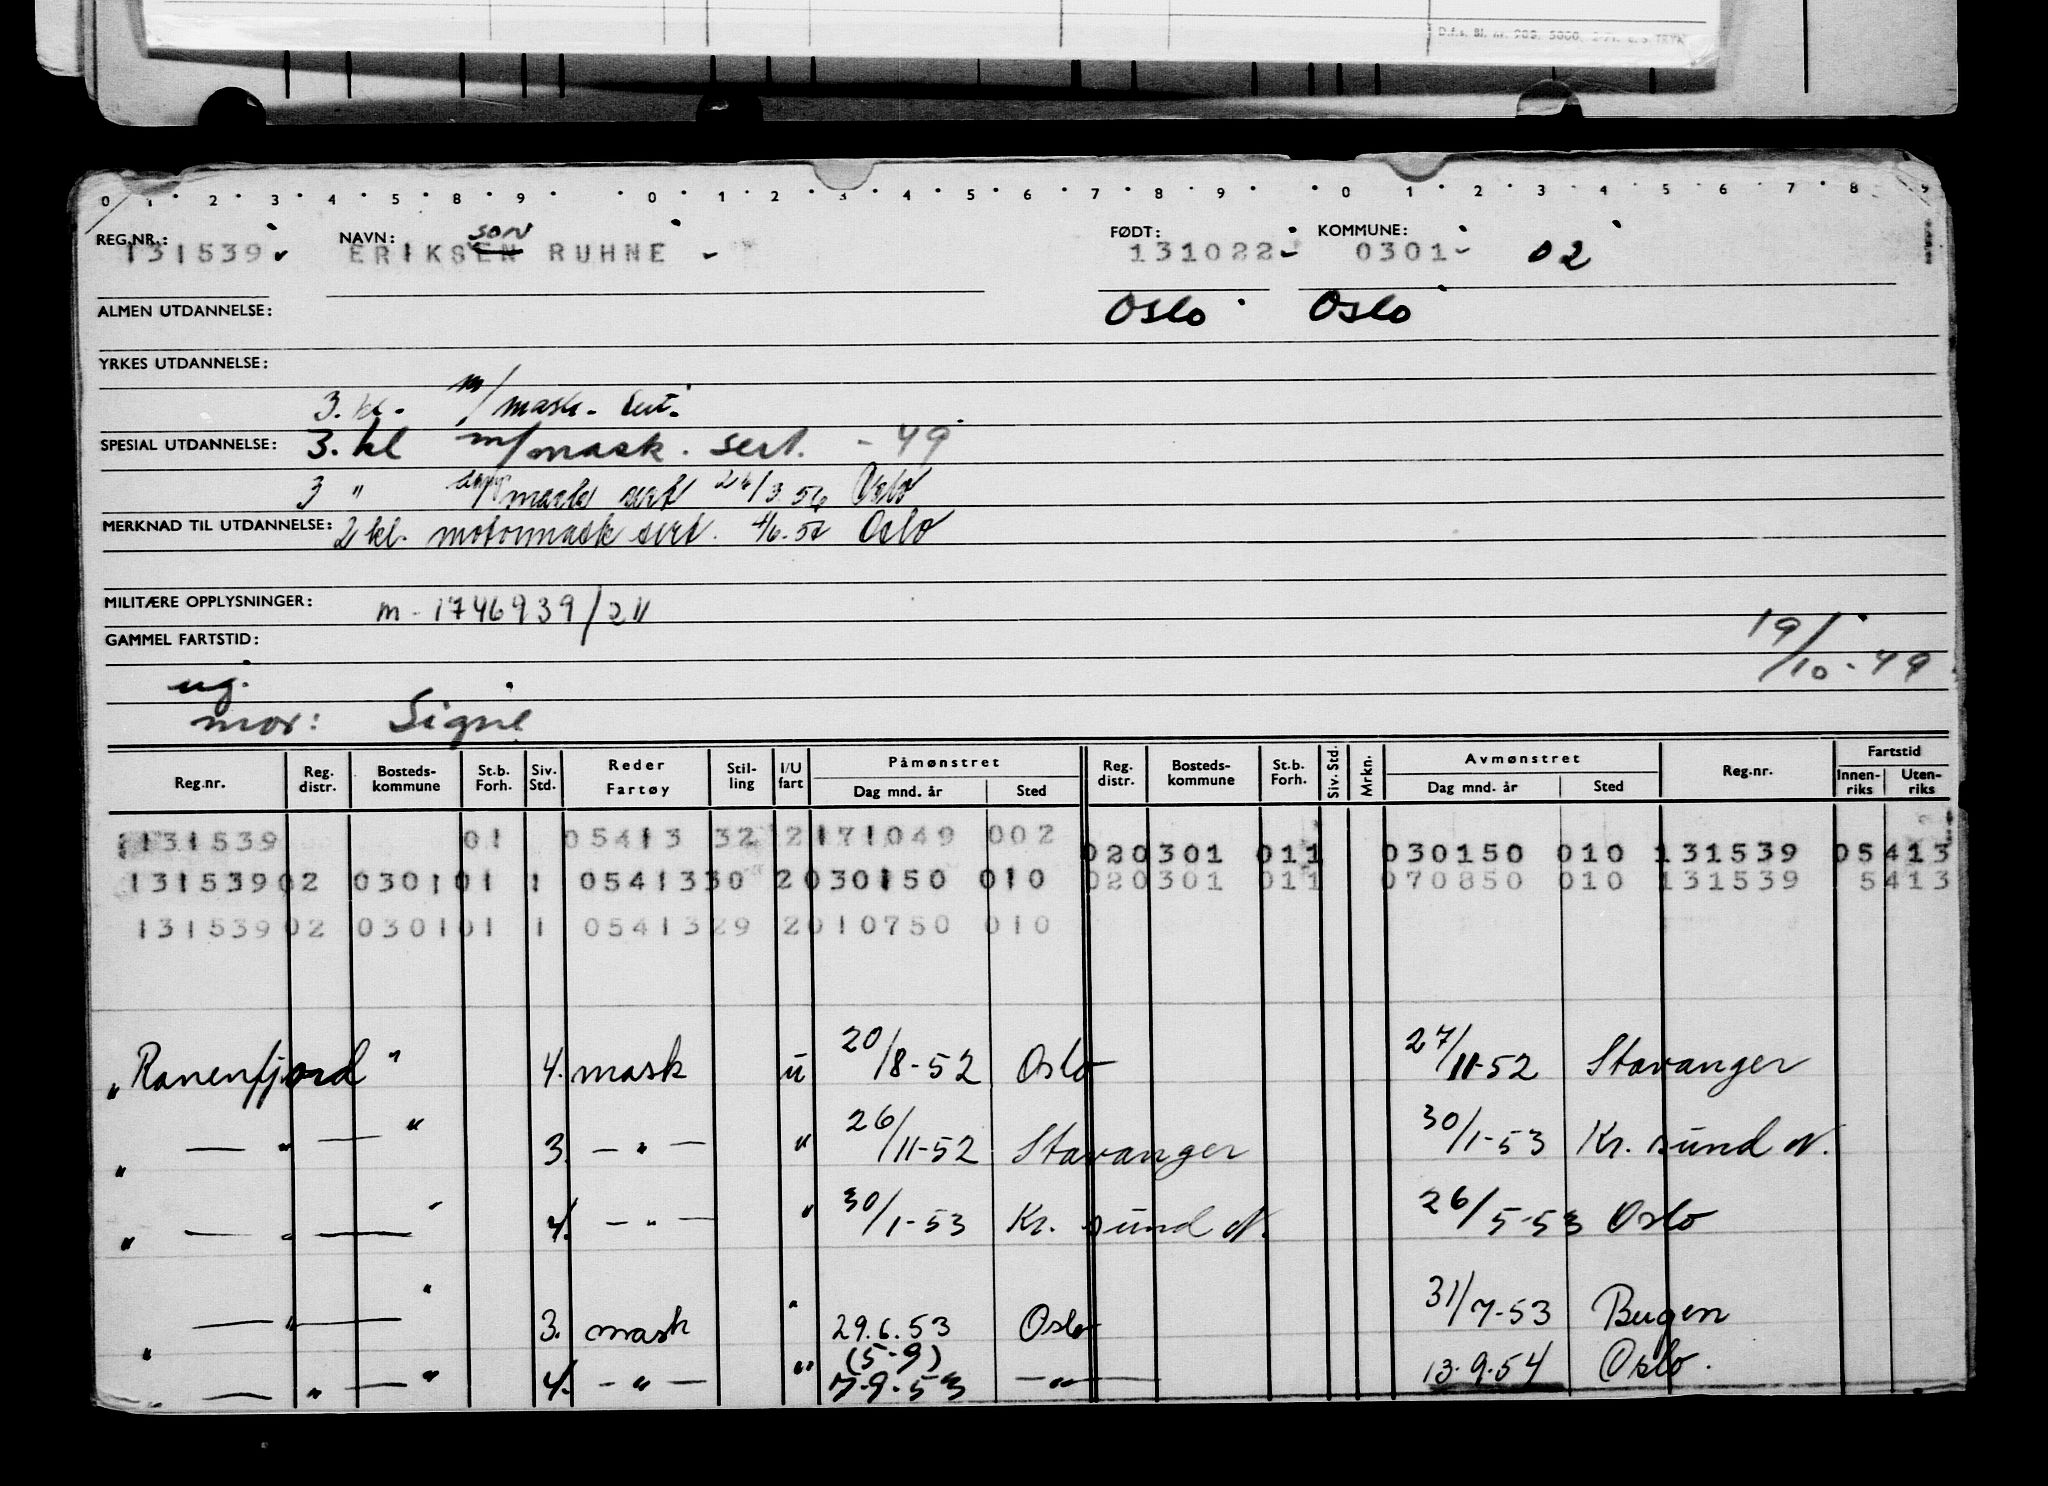 D.f.s. Bl. nr. 909. 5000.
0 1 2 3 4 5 8 9 0 1 2 3 4 5 6 7 8 9 0 1 2 3 4 5 6 7 8 9
REG.NR.: NAVN: son FØDT: KOMMUNE:
131539 ERIKSEN RUHNE 131022 0301 02
ALMEN UTDANNELSE: Oslo Oslo
YRKES UTDANNELSE:
3. kl. m/mask. sert.
SPESIAL UTDANNELSE: 3. kl m/mask. sert. - 49
3 " mask sert 24/3 54 Oslo
MERKNAD TIL UTDANNELSE: 2 kl. motormask sert. Oslo
MILITÆRE OPPLYSNINGER: m - 1746939/211
GAMMEL FARTSTID: 19/10 - 49
ug.
mor: Signe
Reg.nr. Reg. distr. Bosteds-kommune St.b. Forh. Siv. Std. Reder Fartøy Stil-ling I/U fart Påmønstret Dag mnd. år Sted Reg. distr. Bosteds-kommune St.b. Forh. Siv. Std. Mrkn. Avmønstret Dag mnd. år Sted Reg.nr. Fartstid Innen-riks Uten-riks
131539 01 05413 32 2 171049 002 020301 011 030150 010 131539 05413
131539 02 0301 01 1 05413 30 2 030150 010 020301 011 070850 010 131539 5413
131539 02 0301 01 1 05413 29 2 010750 010
" Ranenfjord " 4. mask u 20/8-52 Oslo 27/11-52 Stavanger
" — " — " 3. — " — " 26/11-52 Stavanger 30/1-53 Kr. sund N.
" — " — " 4. — " — " 30/1-53 Kr. sund N. 26/5-53 Oslo
" — " — " 3. mask " 29.6.53 Oslo 31/7-53 Bugen
(5-9)
" — " — " 4. — " — " 7-9-53 — " — 13.9.54 Oslo.